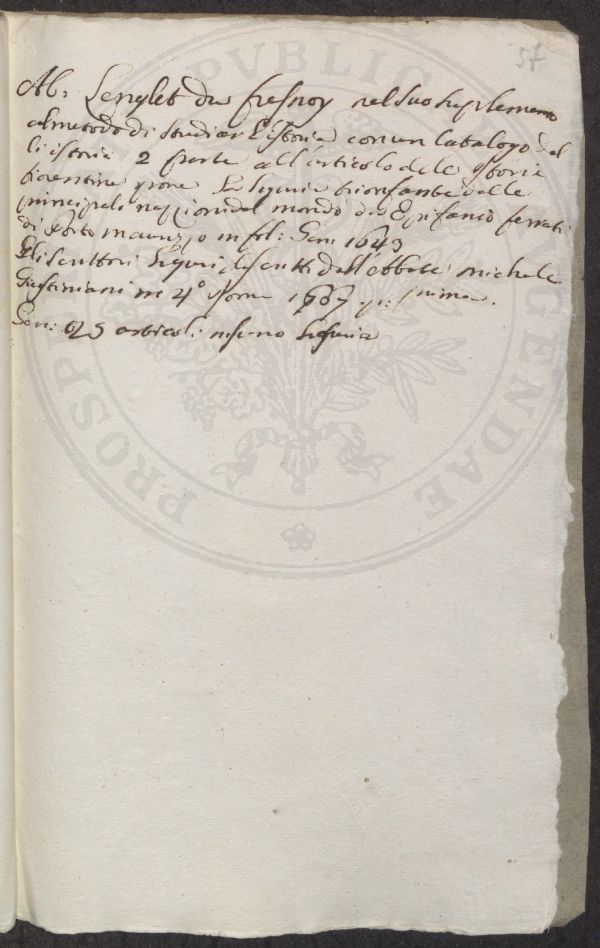 57
Ab: Lenglet du fresnoy nel suo suplemento
al metodo di studiar L'istoria con un Catalogo del
l'istoria 2 parte all'articolo dele storie
fiorentine pone La Liguria trionfante delle
principali nazzioni del mondo di Epifanio ferrari
di Porto maurizio in fol: Gen: 1643
Gli scrittori Liguri descritti dall'Abbate michele
Giustiniani in 4° Roma 1667 p: prima.
Gen: 025 articoli Liguria
PUBLIC
GENDAE
PROSP